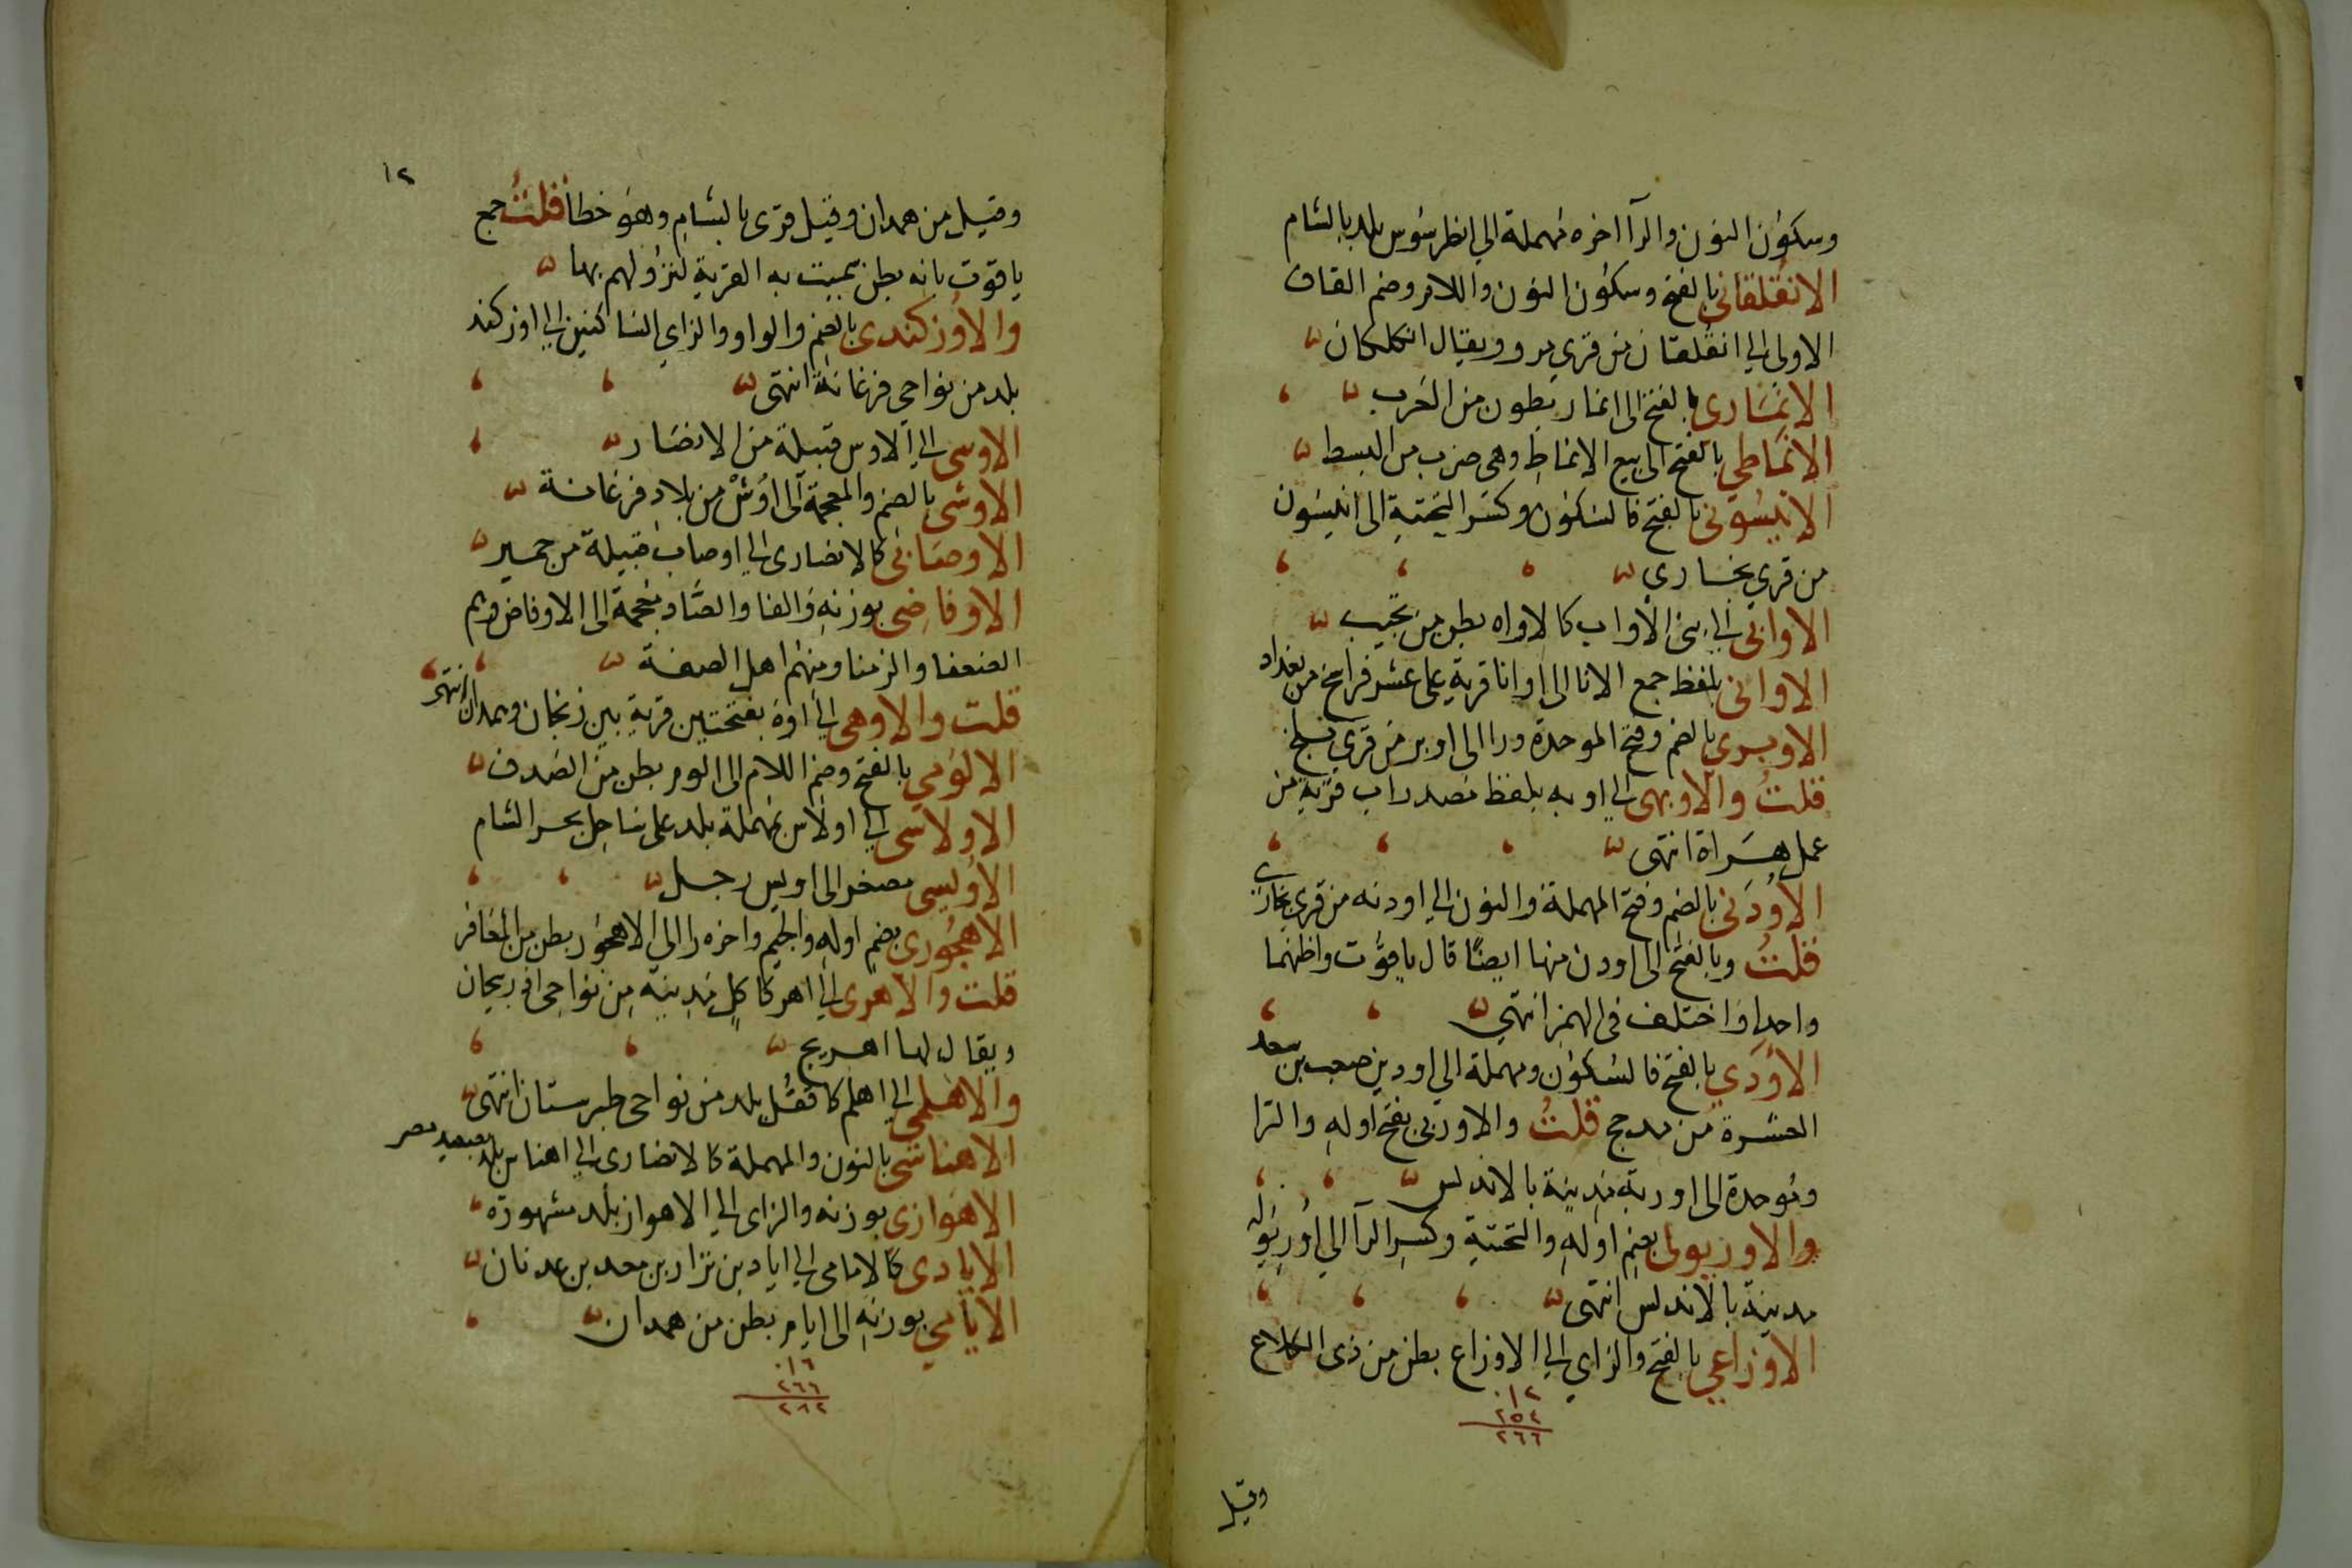 وسكون النون والرآ اخره مهملة الي انطرسوس بلد بالشام
الانقلقانى بالفتح وسكون النون واللام وضم القاف
الاولى الي انقلقان من قري مرو ويقال انكلكان
الانمارى بالفتح الى انمار بطون من العرب
الانماطي بالفتح الى بيع الانماط وهي ضرب من البسط
الانيسونى بالفتح فالسكون وكسر التحتية الى انيسون
من قري بخاري
الاوابى الي بنى الاواب كالاواه بطن من تجيب
الاوانى بلفظ جمع الانا الى اوانا قرية على عشر فراسخ من بغداد
الاوبرى بالضم وفتح الموحدة ورا الى اوبر من قري بلخ
قلت والاوبهى الي اوبه بلفظ مصدر اب قرية من
عمل هراة انتهى
الاودنى بالضم وفتح المهملة والنون الي اودنه من قرى بخارى
قلت وبالفتح الى اودن منها ايضا قال ياقوت واظنهما
واحدا واختلف فى الهمز انتهي
الاودي بالفتح فالسكون ومهملة الي اود بن صعب بن سعد
العشرة من مدحج قلت والاوربى بفتح اوله والرا
وموحدة الى اوربة مدينة بالاندلس
والاوريولى بضم اوله والتحتية وكسر الرآ الي اوريوله
مدينة بالاندلس انتهى
الاوزاعي بالفتح والزاي الي الاوزاع بطن من ذى الكلاع
١٢
٢٥٤
٢٦٦
وقيل
١٢
وقيل من همدان وقيل قرى بالشام وهو خطا قلت جمع
ياقوت بانه بطن سميت به القرية لنزولهم بها
والاوزكندى بالضم والواو والزاي الساكنين الي اوزكند
بلد من نواحي فرغانة انتهى
الاوسى الي الاوس قبيلة من الانصار
الاوشى بالضم والمعجمة الى اوش من بلاد فرغانة
الاوصابى كالانصارى الي اوصاب قبيلة من حمير
الاوفاضى بوزنه والفا والضاد معجمة الى الاوفاض وهم
الضعفا والزمنا ومنهم اهل الصفة
قلت والاوهى الي اوة بفتحتين قرية بين زنجان وهمدان انتهى
الالومي بالفتح وضم اللام الى الوم بطن من الصدف
الاولاسى الي اولاس مهملة بلد على ساحل بحر الشام
الاويسى مصغر الى اويس رجل
الاهجورى بضم اوله والجيم واخره را الى الاهجور بطن من المعافر
قلت والاهرى الي اهر كاكل مدينه من نواحى اذربيجان
ويقال لها اهريج
والاهلمي الي اهلم كاقتل بلد من نواحى طبرستان انتهى
الاهناسى بالنون والمهملة كالانصارى الي اهناس بلد بصعيد مصر
الاهوازى بوزنه والزاى الي الاهواز بلد مشهورة
الايادى كالامامى الي اياد بن نزار بن معد بن عدنان
الايامي بوزنه الى ايام بطن من همدان
١٦
٢٦٦
٢٨٢